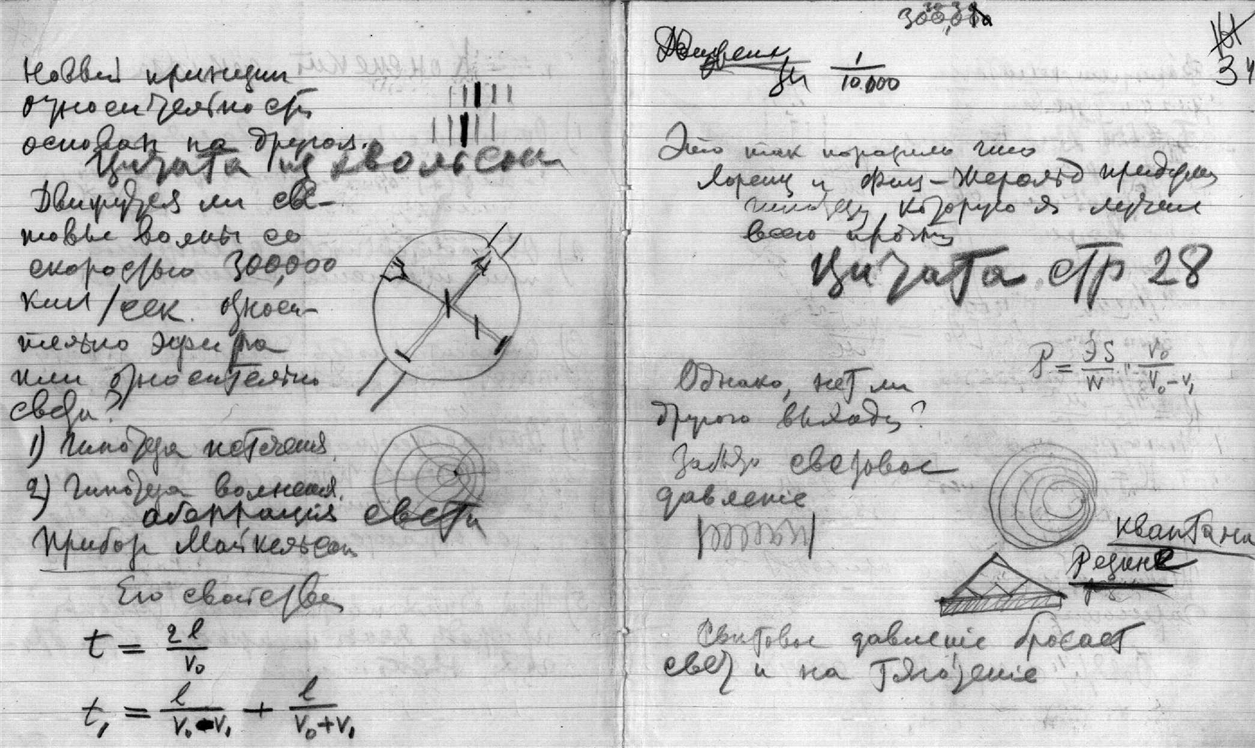 Новый принцип
относительности
основан на другом.
Цитата из Хвольсона
Движутся ли све-
товые волны со
скоростью 300,000
кил/сек. относи-
тельно эфира
или относительно
света?
1) Гипотеза истечения.
2) Гипотеза волнения.
аберрация света
Прибор Майкельсон
Его свойства
t = 2l/V₀
t₁ = l/(V₀-V₁) + l/(V₀+V₁)
34
1/10.000
Это так поразило что
Лоренц и Фиц-Жеральд придумали
гипотезу, которую я
всего
Цитата стр 28
P = ЭS/W · V₀/(V₀-V₁)
Однако, нет ли
другого выхода?
световое
давленiе
Квант а на
Резине
Световое давленiе бросает
свет и на тяготенiе